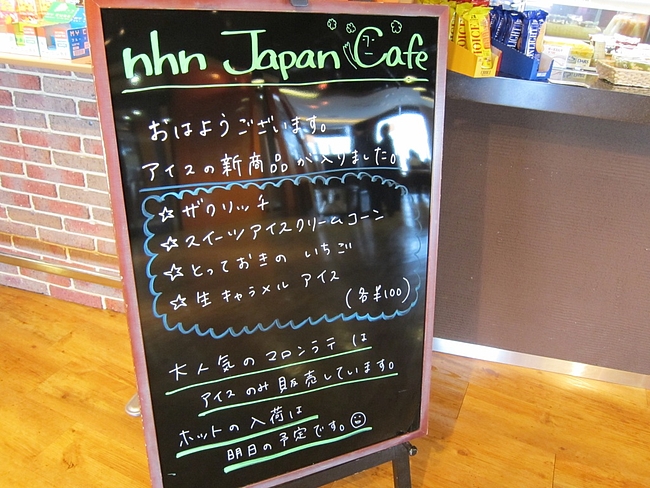 nhn Japan Cafe
おはようございます。
アイスの新商品が入りました。
☆ ザクリッチ
☆ スイーツアイスクリームコーン
☆ とっておきの いちご
☆ 生キャラメル アイス
(各¥100)
大人気のマロンラテは
アイスのみ販売しています。
ホットの入荷は
明日の予定です。